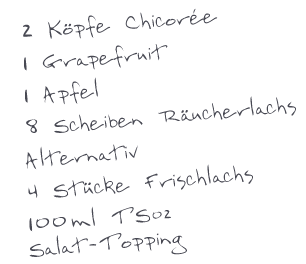 2 Köpfe Chicorée
1 Grapefruit
1 Apfel
8 Scheiben Räucherlachs
Alternativ
4 Stücke Frischlachs
100ml TSoz
Salat-Topping